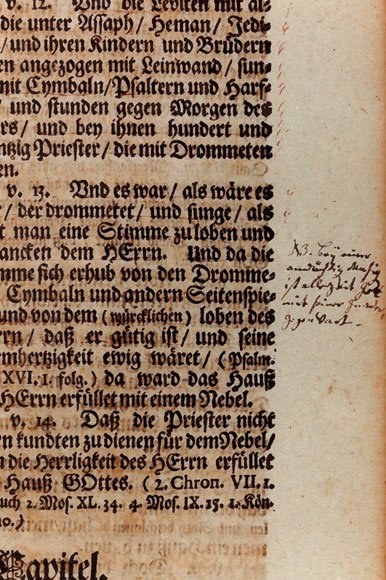 v. 12. Vnd die Leviten mit al-
die unter Assaph/ Heman/ Jedi-
/ und ihren Kindern und Brüdern
en angezogen mit Leinwand/ sun-
mit Cymbaln/Psaltern und Harf-
/ und stunden gegen Morgen des
rs/ und bey ihnen hundert und
ntzig Priester/ die mit Drommeten
en.
v. 13. Vnd es war/ als wäre es
/ der drommetet/ und sunge/ als
t man eine Stimme zu loben und
ancken dem HErrn. Und da die
mme sich erhub von den Dromme-
Cymbaln und andern Seitenspie-
und von dem (würcklichen) loben des
rrn/ daß er gütig ist/ und seine
rmhertzigkeit ewig wäret/ (Psalm.
XVI. 1. folg.) da ward das Hauß
HErrn erfüllet mit einem Nebel.
v. 14. Daß die Priester nicht
en kundten zu dienen für dem Nebel/
n die Herrligkeit des HErrn erfüllet
Hauß GOttes. (2. Chron. VII. 1.
uch 2. Mos. XL. 34. 4. Mos. IX. 15. 1. Kön.
10.)
Capitel.
NB. Bey einer
andächtigen Musiq
ist allezeit Gott
mit seiner Gnaden
Gegenwart.